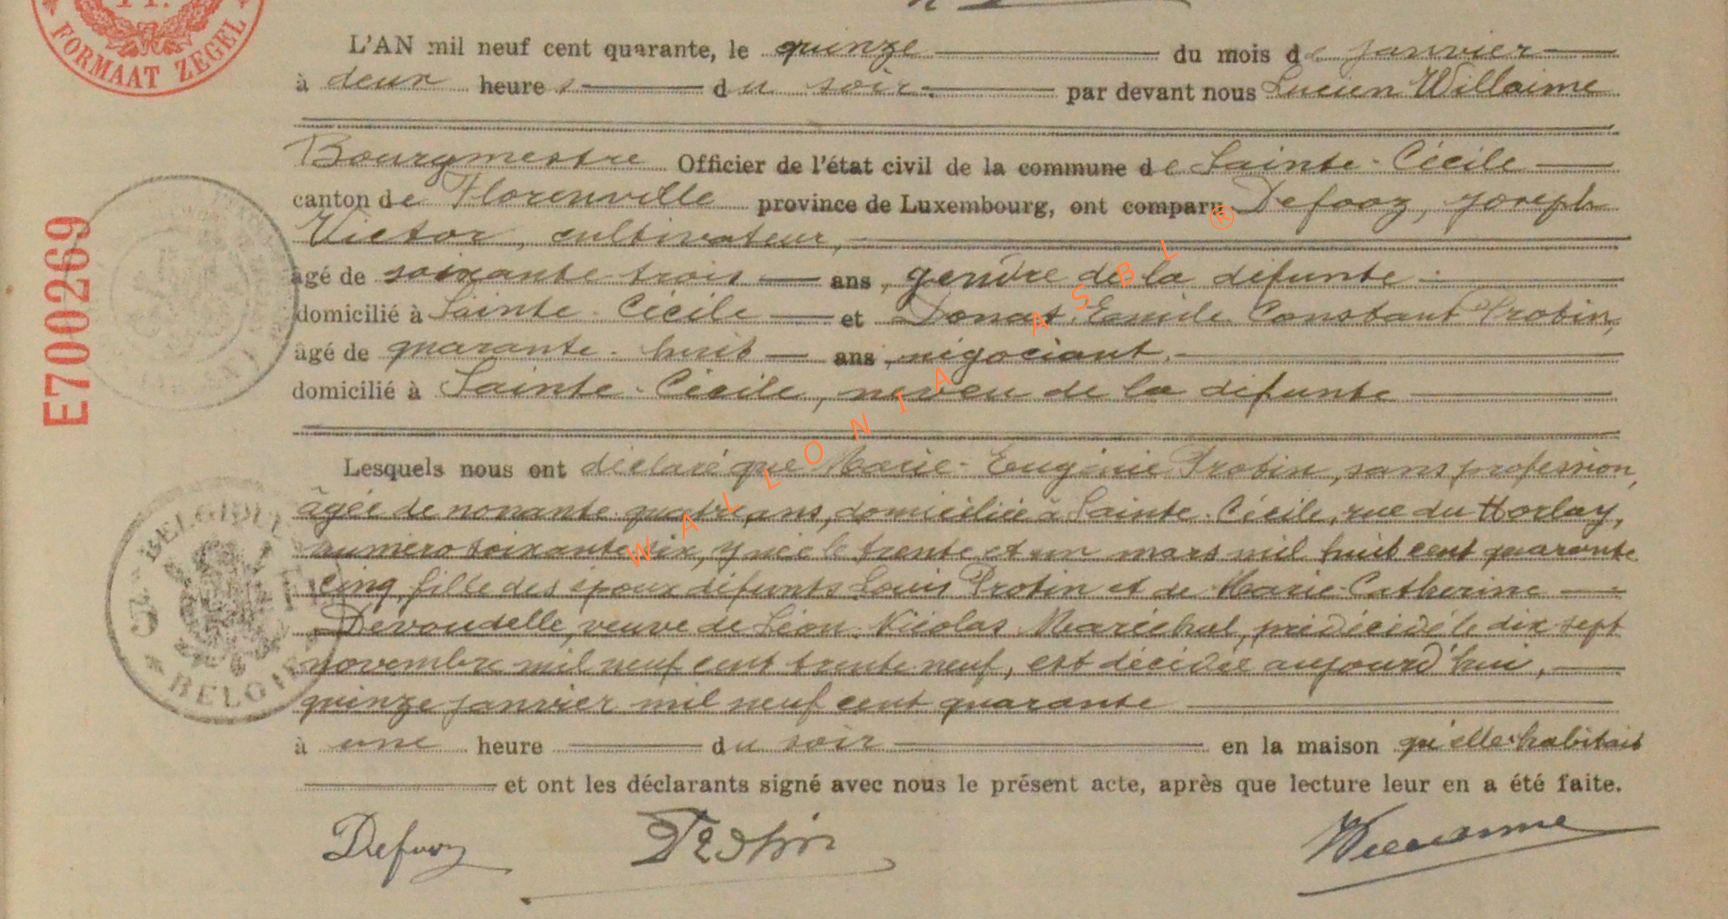 FORMAAT ZEGEL
L'AN mil neuf cent quarante, le quinze du mois de janvier
à deux heures du soir. par devant nous Lucien Willaime
Bourgmestre Officier de l'état civil de la commune de Sainte-Cécile
canton de Florenville province de Luxembourg, ont comparu Defooz, Joseph
Victor, cultivateur,
âgé de soixante trois ans, gendre de la défunte
domicilié à Sainte-Cécile et Donat Emile Constant Probin,
âgé de quarante-huit ans, négociant,
domicilié à Sainte-Cécile, neveu de la défunte
Lesquels nous ont déclaré que Marie-Eugénie Probin, sans profession,
âgée de nonante quatre ans, domiciliée à Sainte-Cécile, rue du Horlay,
numéro soixante dix, y née le trente et un mars mil huit cent quarante
cinq, fille des époux défunts Louis Probin et de Marie Catherine
Devoudelle, veuve de Léon Nicolas Maréchal, prédécédé le dix sept
novembre mil neuf cent trente neuf, est décédée aujourd'hui,
quinze janvier mil neuf cent quarante
à une heure du soir en la maison qu'elle habitait
et ont les déclarants signé avec nous le présent acte, après que lecture leur en a été faite.
Defooz Probin Willaime
E700269
BELGIQUE
5
FR
BELGIE
WALLONIA ASBL ®